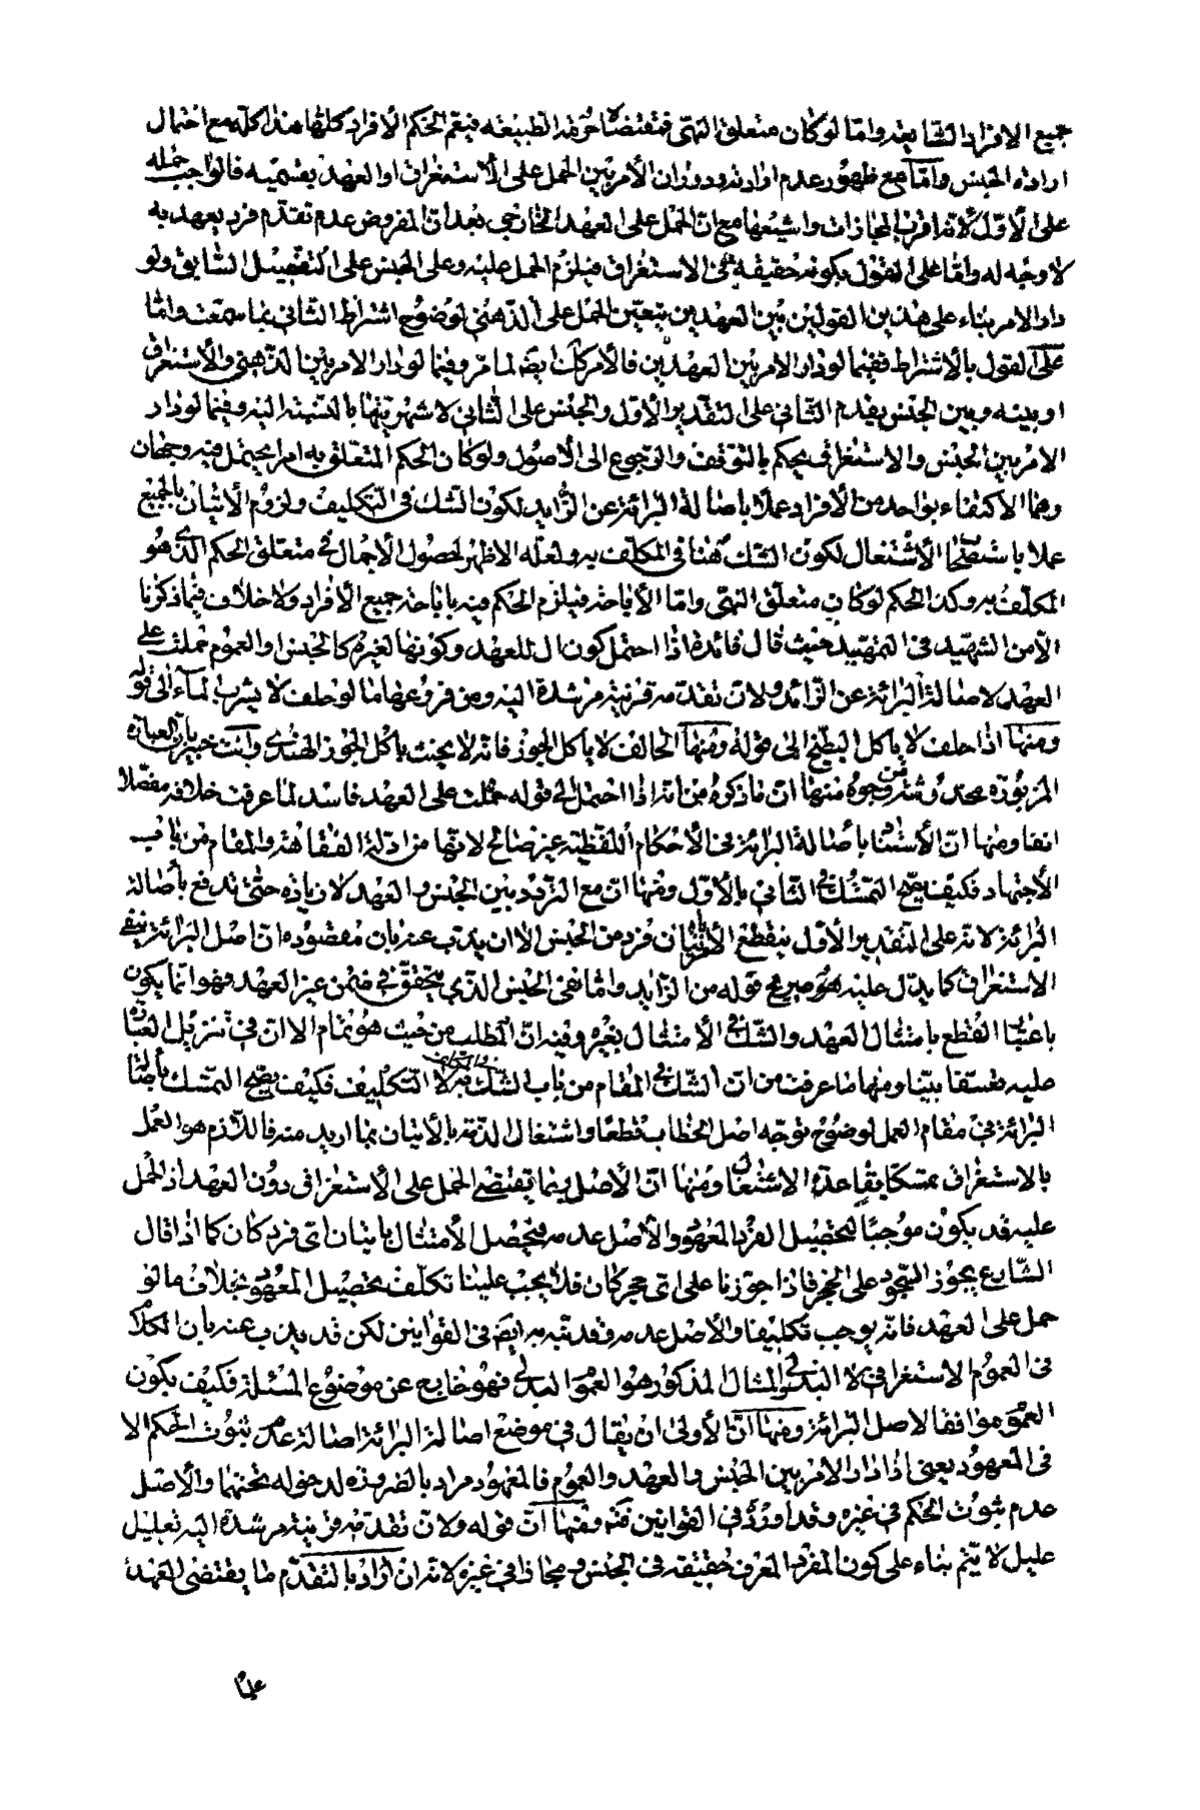 جميع الافراد الشايعة واما لو كان متعلق النهى فمقتضاه حرمة الطبيعة فيعم الحكم الافراد كلها هذا كله مع احتمال
ارادة الجنس واما مع ظهور عدم ارادته ودوران الأمر بين الحمل على الاستغراق او العهد بقسميه فالواجب حمله
على الاول لانه اقرب المجازات واشيعها مع ان الحمل على العهد الخارجى بعد ان المفروض عدم تقدم فرد يعهد به
لا وجه له واما على القول بكونه حقيقة فى الاستغراق فيلزم الحمل عليه وعلى الجنس على التفصيل السابق ولو
دار الامر بناء على هذين القولين بين العهدين يتعين الحمل على الذهنى لوضوح اشتراط الثانى بما سمعت واما
على القول بالاشتراط ففيما لو دار الامر بين العهدين فالأمر كك ايضا لما مر وفيما لو دار الامر بين الذهنى والاستغراق
او بينه وبين الجنس يقدم الثانى على التقدير الاول والجنس على الثانى لاشهريتها بالنسبة اليه وفيما لو دار
الامر بين الجنس والاستغراق يحكم بالتوقف والرجوع الى الاصول ولو كان الحكم المتعلق به امرا يحتمل فيه وجهان
وهما الاكتفاء بواحد من الافراد عملا باصالة البرائة عن الزايد لكون الشك فى التكليف ولزوم الاتيان بالجميع
عملا باستصحاب الاشتغال لكون الشك هنا فى المكلف به ولعله الاظهر لحصول الاجمال فى متعلق الحكم الذى هو
المكلف به وكذا الحكم لو كان متعلق النهى واما الاباحة فيلزم الحكم فيه باباحة جميع الأفراد ولا خلاف فيما ذكرنا
الا من الشهيد فى التمهيد حيث قال فائدة اذا احتمل كون ال للعهد وكونها لغيره كالجنس او العموم حملت على
العهد لاصالة البرائة عن الزائد ولان تقدمه قرينة مرشدة اليه ومن فروعها ما لو حلف لا يشرب الماء الى قوله
ومنها اذا حلف لا ياكل البطيخ الى قوله ومنها الحالف لا ياكل الجوز فانه لا يحنث باكل الجوز الهندى وانت خبير بان العبارة
المزبورة مخدوشة من وجوه منها ان ما ذكره من انه اذا احتمل الى قوله حملت على العهد فاسد لما عرفت خلافه مفصلا
انفا ومنها ان الاستناد باصالة البرائة فى الأحكام اللفظية غير صالح لانها من ادلة الفقاهة والمقام من باب
الاجتهاد فكيف يصح التمسك فى الثانى بالاول ومنها ان مع التردد بين الجنس والعهد لا زيادة حتى تدفع باصالة
البرائة لانه على التقدير الأول ينقطع الاتيان فرد من الجنس الا ان يذب عنه بان مقصوده ان اصل البرائة ينفى
الاستغراق كما يدل عليه هو صريح قوله من الزايد واما نفى الجنس الذى يتحقق فى ضمن غير العهد فهو انما يكون
باعتبار القطع بامتثال العهد والشك فى الامتثال بغيره وفيه ان المطلب من حيث هو تمام الا ان فى تنزيل العبارة
عليه تعسفا بينا ومنها ما عرفت من ان الشك فى المقام من باب الشك فى المكلف به لا التكليف فكيف يصح التمسك باصالة
البرائة فى مقام العمل لوضوح توجه اصل الخطاب قطعا واشتغال الذمة بالاتيان بما اريد منه فاللازم هو العمل
بالاستغراق تمسكا بقاعدة الاشتغال ومنها ان الاصل ربما يقتضى الحمل على الاستغراق دون العهد اذ الحمل
عليه قد يكون موجبا لتحصيل الفرد المعهود والأصل عدمه فيحصل الامتثال باتيان اى فرد كان كما اذا قال
الشارع يجوز السجود على الحجر فاذا جوزنا على اى حجر كان فلا يجب علينا تكلف تحصيل المعهود بخلاف ما لو
حمل على العهد فانه يوجب تكليفا والأصل عدمه وقد تنبه به ايضا فى القوانين لكن قد يذب عنه بان الكلام
فى العموم الاستغراقى لا البدلى والمثال المذكور هو العموم البدلى فهو خارج عن موضوع المسئلة فكيف يكون
العموم موافقا لاصل البرائة ومنها ان الأولى ان يقال فى موضع اصالة البرائة اصالة عدم ثبوت الحكم الا
فى المعهود يعنى اذا دار الامر بين الجنس والعهد والعموم فالمعهود مراد بالضرورة لدخوله تحتهما والأصل
عدم ثبوت الحكم فى غيره وقد اورد فى القوانين فتنبه ومنها ان قوله ولان تقدمه قرينة مرشدة اليه تعليل
عليل لا يتم بناء على كون المفرد المعرف حقيقة فى الجنس ومجازا فى غيره لانه ان اراد بالتقدم ما يقتضى العهد
علما